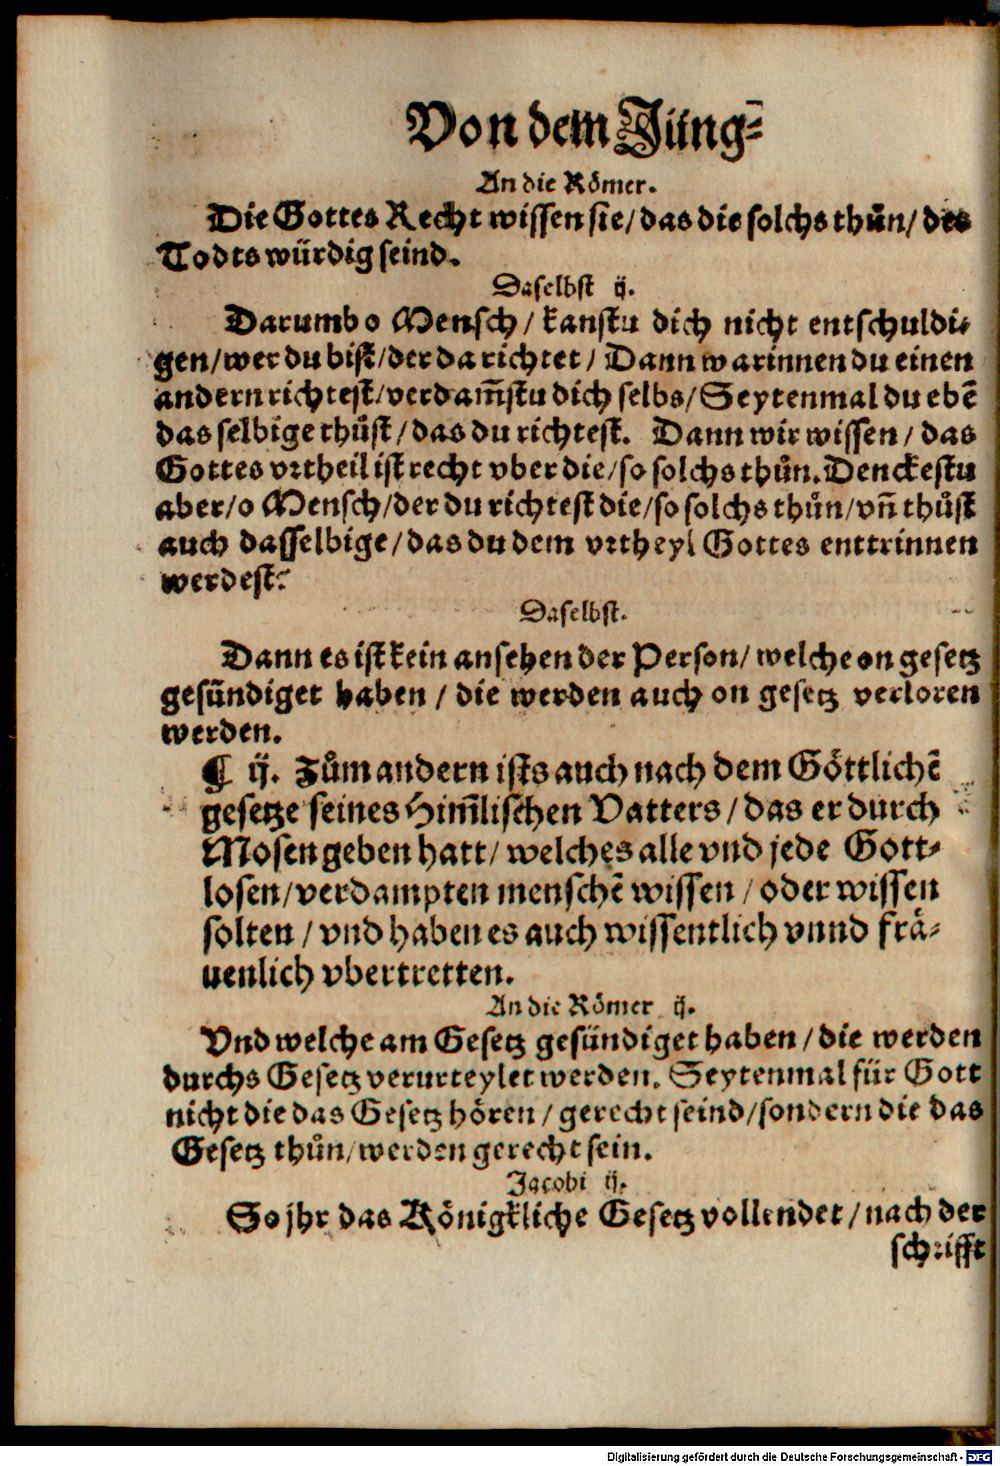 Von dem Jüng⸗
An die Römer.
Die Gottes Recht wissen sie/das die solchs thůn/des
Todts würdig seind.
Daselbst ij.
Darumb o Mensch/kanstu dich nicht entschuldi⸗
gen/wer du bist/der da richtet/Dann warinnen du einen
andern richtest/verdam̃stu dich selbs/Seytenmal du ebē
das selbige thůst/das du richtest. Dann wir wissen/das
Gottes vrtheil ist recht vber die/so solchs thůn. Denckestu
aber/o Mensch/der du richtest die/so solchs thůn/vñ thůst
auch dasselbige/das du dem vrtheyl Gottes enttrinnen
werdest?
Daselbst.
Dann es ist kein ansehen der Person/welche on gesetz
gesündiget haben/die werden auch on gesetz verloren
werden.
¶ ij. Zům andern ists auch nach dem Göttlichē
gesetze seines Him̃lischen Vatters/das er durch
Mosen geben hatt/welches alle vnd jede Gott⸗
losen/verdampten menschē wissen/oder wissen
solten/vnd haben es auch wissentlich vnnd frä⸗
uenlich vbertretten.
An die Römer ij.
Vnd welche am Gesetz gesündiget haben/die werden
durchs Gesetz verurteylet werden. Seytenmal für Gott
nicht die das Gesetz hören/gerecht seind/sondern die das
Gesetz thůn/werden gerecht sein.
Jacobi ij.
So jhr das Königkliche Gesetz vollendet/nach der
schrifft
Digitalisierung gefördert durch die Deutsche Forschungsgemeinschaft - DFG